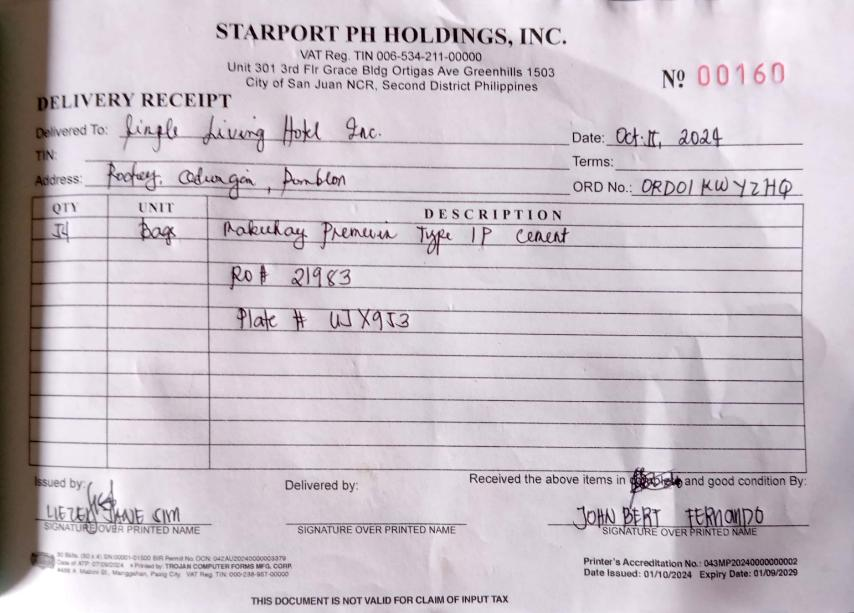 STARPORT PH HOLDINGS, INC.
VAT Reg. TIN 006-534-211-00000
Unit 301 3rd Flr Grace Bldg Ortigas Ave Greenhills 1503
City of San Juan NCR, Second District Philippines
Nº 00160
DELIVERY RECEIPT
Delivered To: Jingle Living Hotel Inc.
Date: Oct. 11, 2024
TIN:
Terms:
Address: Romblon
ORD No.: ORD01KWYZHQ
QTY UNIT DESCRIPTION
bags Type 1P cement
RO # 21983
Plate #
Issued by:
Delivered by:
Received the above items in and good condition By:
JANE SIM
JOHN BERT FERNONDO
SIGNATURE OVER PRINTED NAME
SIGNATURE OVER PRINTED NAME
SIGNATURE OVER PRINTED NAME
30 Bklts. (50 x 4) SN:00001-01500 BIR Permit No. OCN:
Date of ATP: 07/09/2024 Printed by: TROJAN COMPUTER FORMS MFG. CORP.
Mabini St., Manggahan, Pasig City VAT Reg. TIN: 000-238-957-00000
Printer's Accreditation No.: 043MP20240000000002
Date Issued: 01/10/2024 Expiry Date: 01/09/2029
THIS DOCUMENT IS NOT VALID FOR CLAIM OF INPUT TAX